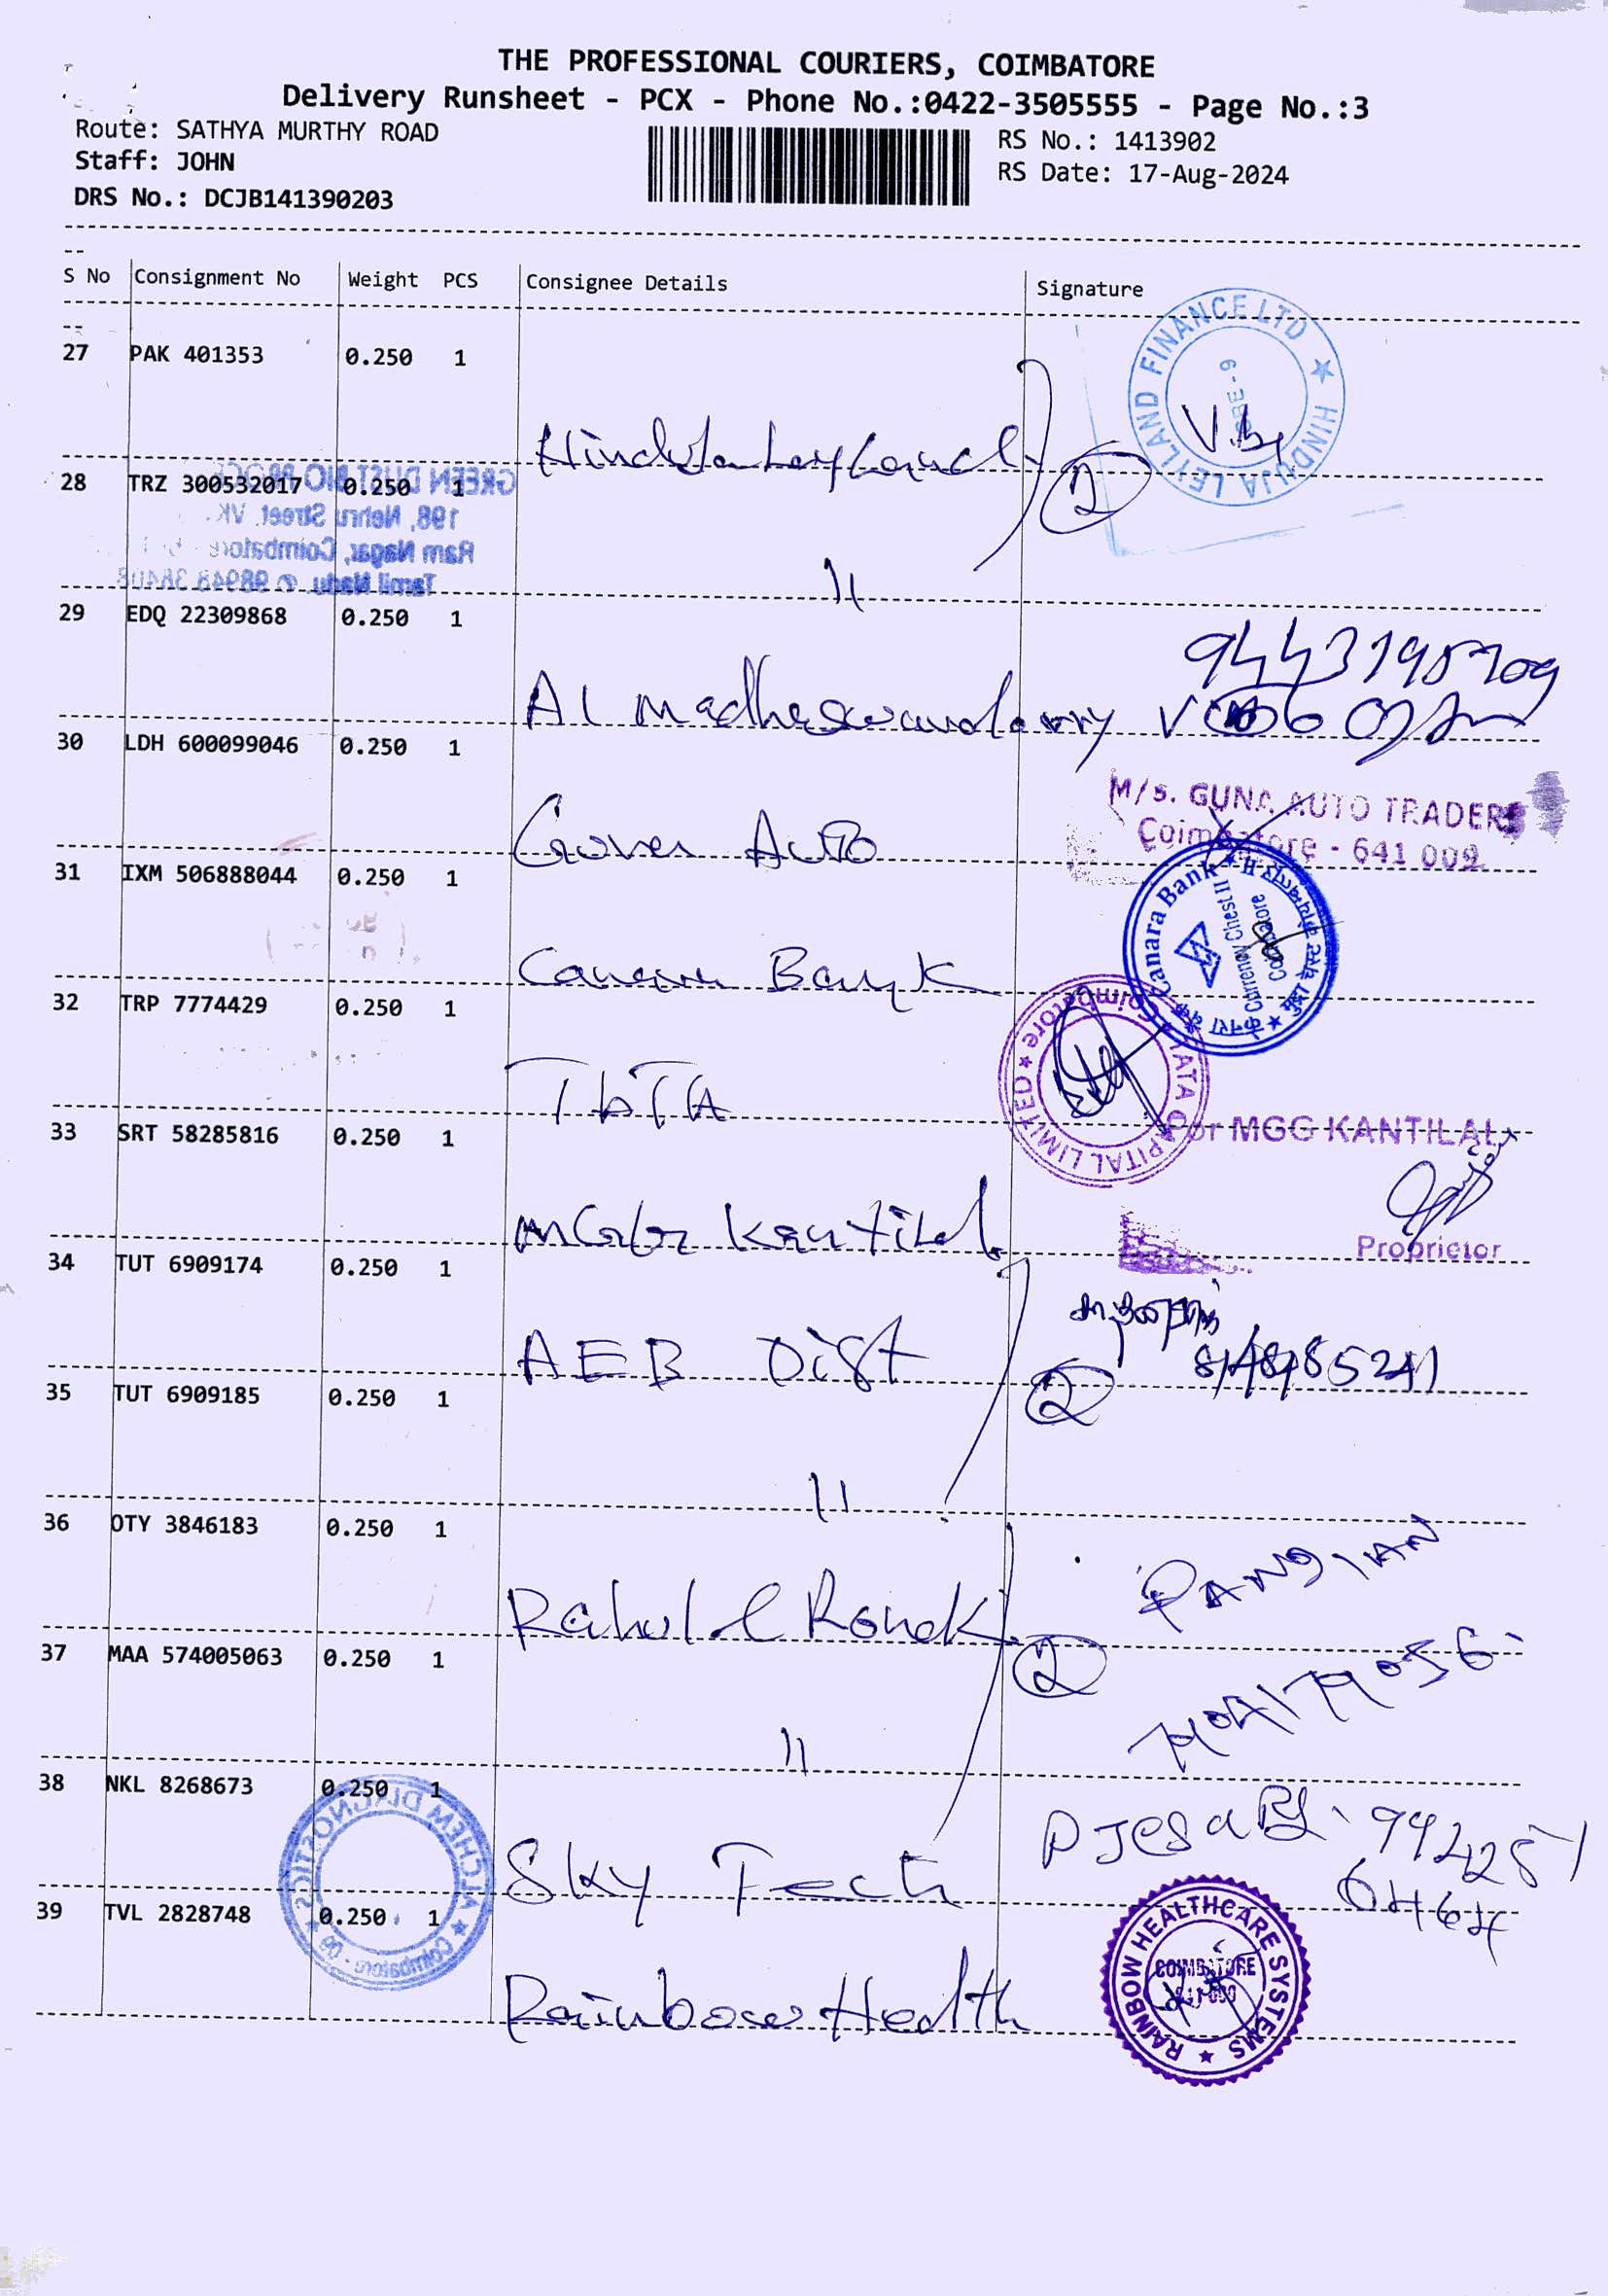 THE PROFESSIONAL COURIERS, COIMBATORE
Delivery Runsheet - PCX - Phone No.:0422-3505555 - Page No.:3
Route: SATHYA MURTHY ROAD
Staff: JOHN
DRS No.: DCJB141390203
RS No.: 1413902
RS Date: 17-Aug-2024
S No Consignment No Weight PCS Consignee Details Signature
HINDUJA LEYLAND FINANCE LTD
27 PAK 401353 0.250 1
28 TRZ 300532017 0.250 1
GREEN DUST BIO
198, Nehru Street, VK.
Ram Nagar, Coimbatore
Tamil Nadu.
29 EDQ 22309868 0.250 1
Al
30 LDH 600099046 0.250 1
M/s. GUNA AUTO TRADERS
Coimbatore - 641 009
Auto
31 IXM 506888044 0.250 1
Canara Bank
Currency Chest II
Coimbatore
केनरा बैंक
Bank
32 TRP 7774429 0.250 1
TATA CAPITAL LIMITED
Coimbatore
33 SRT 58285816 0.250 1
For MGG KANTILAL
Kantilal
Proprietor
34 TUT 6909174 0.250 1
AEB Dist
2
35 TUT 6909185 0.250 1
11
36 OTY 3846183 0.250 1
Rahul & Ronek
2
37 MAA 574005063 0.250 1
11
38 NKL 8268673 0.250 1
ALCHEMA DIAGNOSTICS
Coimbatore - 09
Sky Tech
994251
0464
39 TVL 2828748 0.250 1
Rainbow Health
RAINBOW HEALTHCARE SYSTEMS
COIMBATORE